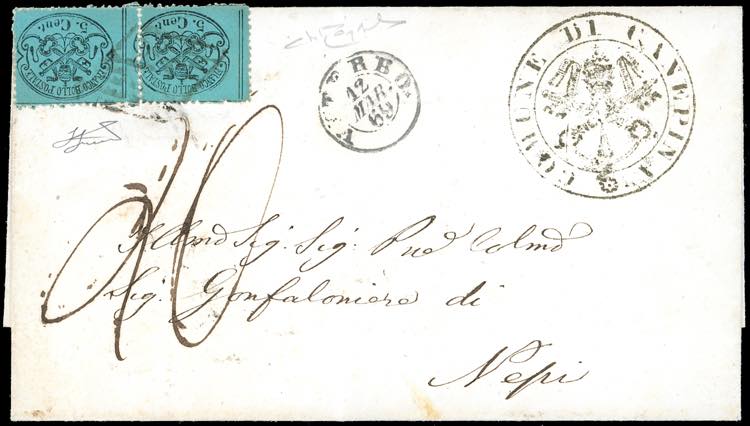 5. Cent.
FRANCO BOLLO POSTALE
5. Cent.
FRANCO BOLLO POSTALE
VITERBO
12
MAR.
69
COMUNE DI CANEPINA
Sig. Sig.
Sig. Gonfaloniere di
Nepi